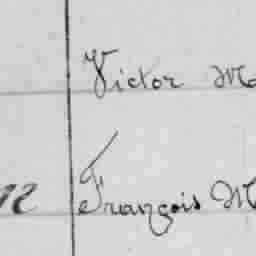 Victor Ma
12 François M